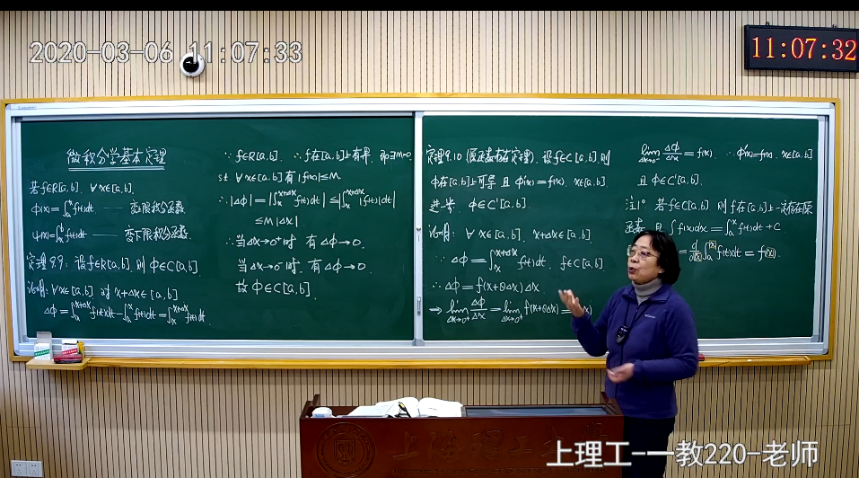 2020-03-06 11:07:33
11:07:32
微积分学基本定理
若f∈R[a,b], ∀x∈[a,b],
Φ(x)=∫ₐˣf(t)dt —— 变上限积分函数
Ψ(x)=∫ₓᵇf(t)dt —— 变下限积分函数
定理9.9: 设f∈R[a,b], 则 Φ∈C[a,b]
证明: ∀x∈[a,b] 对 x+Δx∈[a,b]
ΔΦ=∫ₐˣ⁺ᐃˣf(t)dt-∫ₐˣf(t)dt=∫ₓˣ⁺ᐃˣf(t)dt.
∵ f∈R[a,b], ∴ f在[a,b]上有界, 即∃M>0
st ∀x∈[a,b] 有 |f(x)|≤M
∴ |ΔΦ|=|∫ₓˣ⁺ᐃˣf(t)dt|≤|∫ₓˣ⁺ᐃˣ|f(t)|dt|
≤M|Δx|
∴ 当Δx→0⁺时 有 ΔΦ→0.
当Δx→0⁻时, 有 ΔΦ→0
故 Φ∈C[a,b].
定理9.10 (原函数存在定理), 设f∈C[a,b], 则
Φ在[a,b]上可导 且 Φ'(x)=f(x), x∈[a,b]
进一步, Φ∈C'[a,b].
证明: ∀x∈[a,b], x+Δx∈[a,b]
∵ ΔΦ=∫ₓˣ⁺ᐃˣf(t)dt, f∈C[a,b]
∴ ΔΦ=f(x+θΔx)Δx
⇒ lim Δx→0⁺ ΔΦ/Δx = lim Δx→0⁺ f(x+θΔx)=
lim Δx→0⁻ ΔΦ/Δx = f(x), ∴ Φ'(x)=f(x), x∈[a,b]
且 Φ∈C'[a,b].
注1° 若f∈C[a,b] 则 f在[a,b]上一定存在原
函数 且 ∫f(x)dx=∫ₐˣf(t)dt+C
= d/dx ∫ₐˣf(t)dt=f(x).
上海理工大学
上理工-一教220-老师